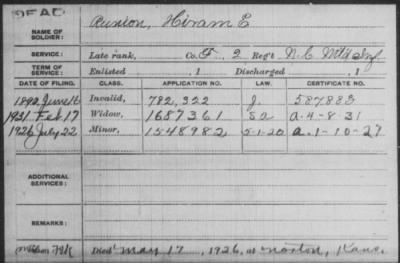 DEAD
Runion, Hiram E
NAME OF
SOLDIER:
SERVICE: Late rank, Co. F, 2 Reg't N.C. Mtd Inf.
TERM OF
SERVICE: Enlisted , 1 Discharged , 1
DATE OF FILING. CLASS. APPLICATION NO. LAW. CERTIFICATE NO.
1890 June 16 Invalid, 782,322 J. 587883
1931 Feb 17 Widow, 1687361 Sa a-4-8-31
1926 July 22 Minor, 1548982 5-1-20 a.1-10-27
ADDITIONAL
SERVICES:
REMARKS:
Died May 17, 1926, at Norton, Kans.